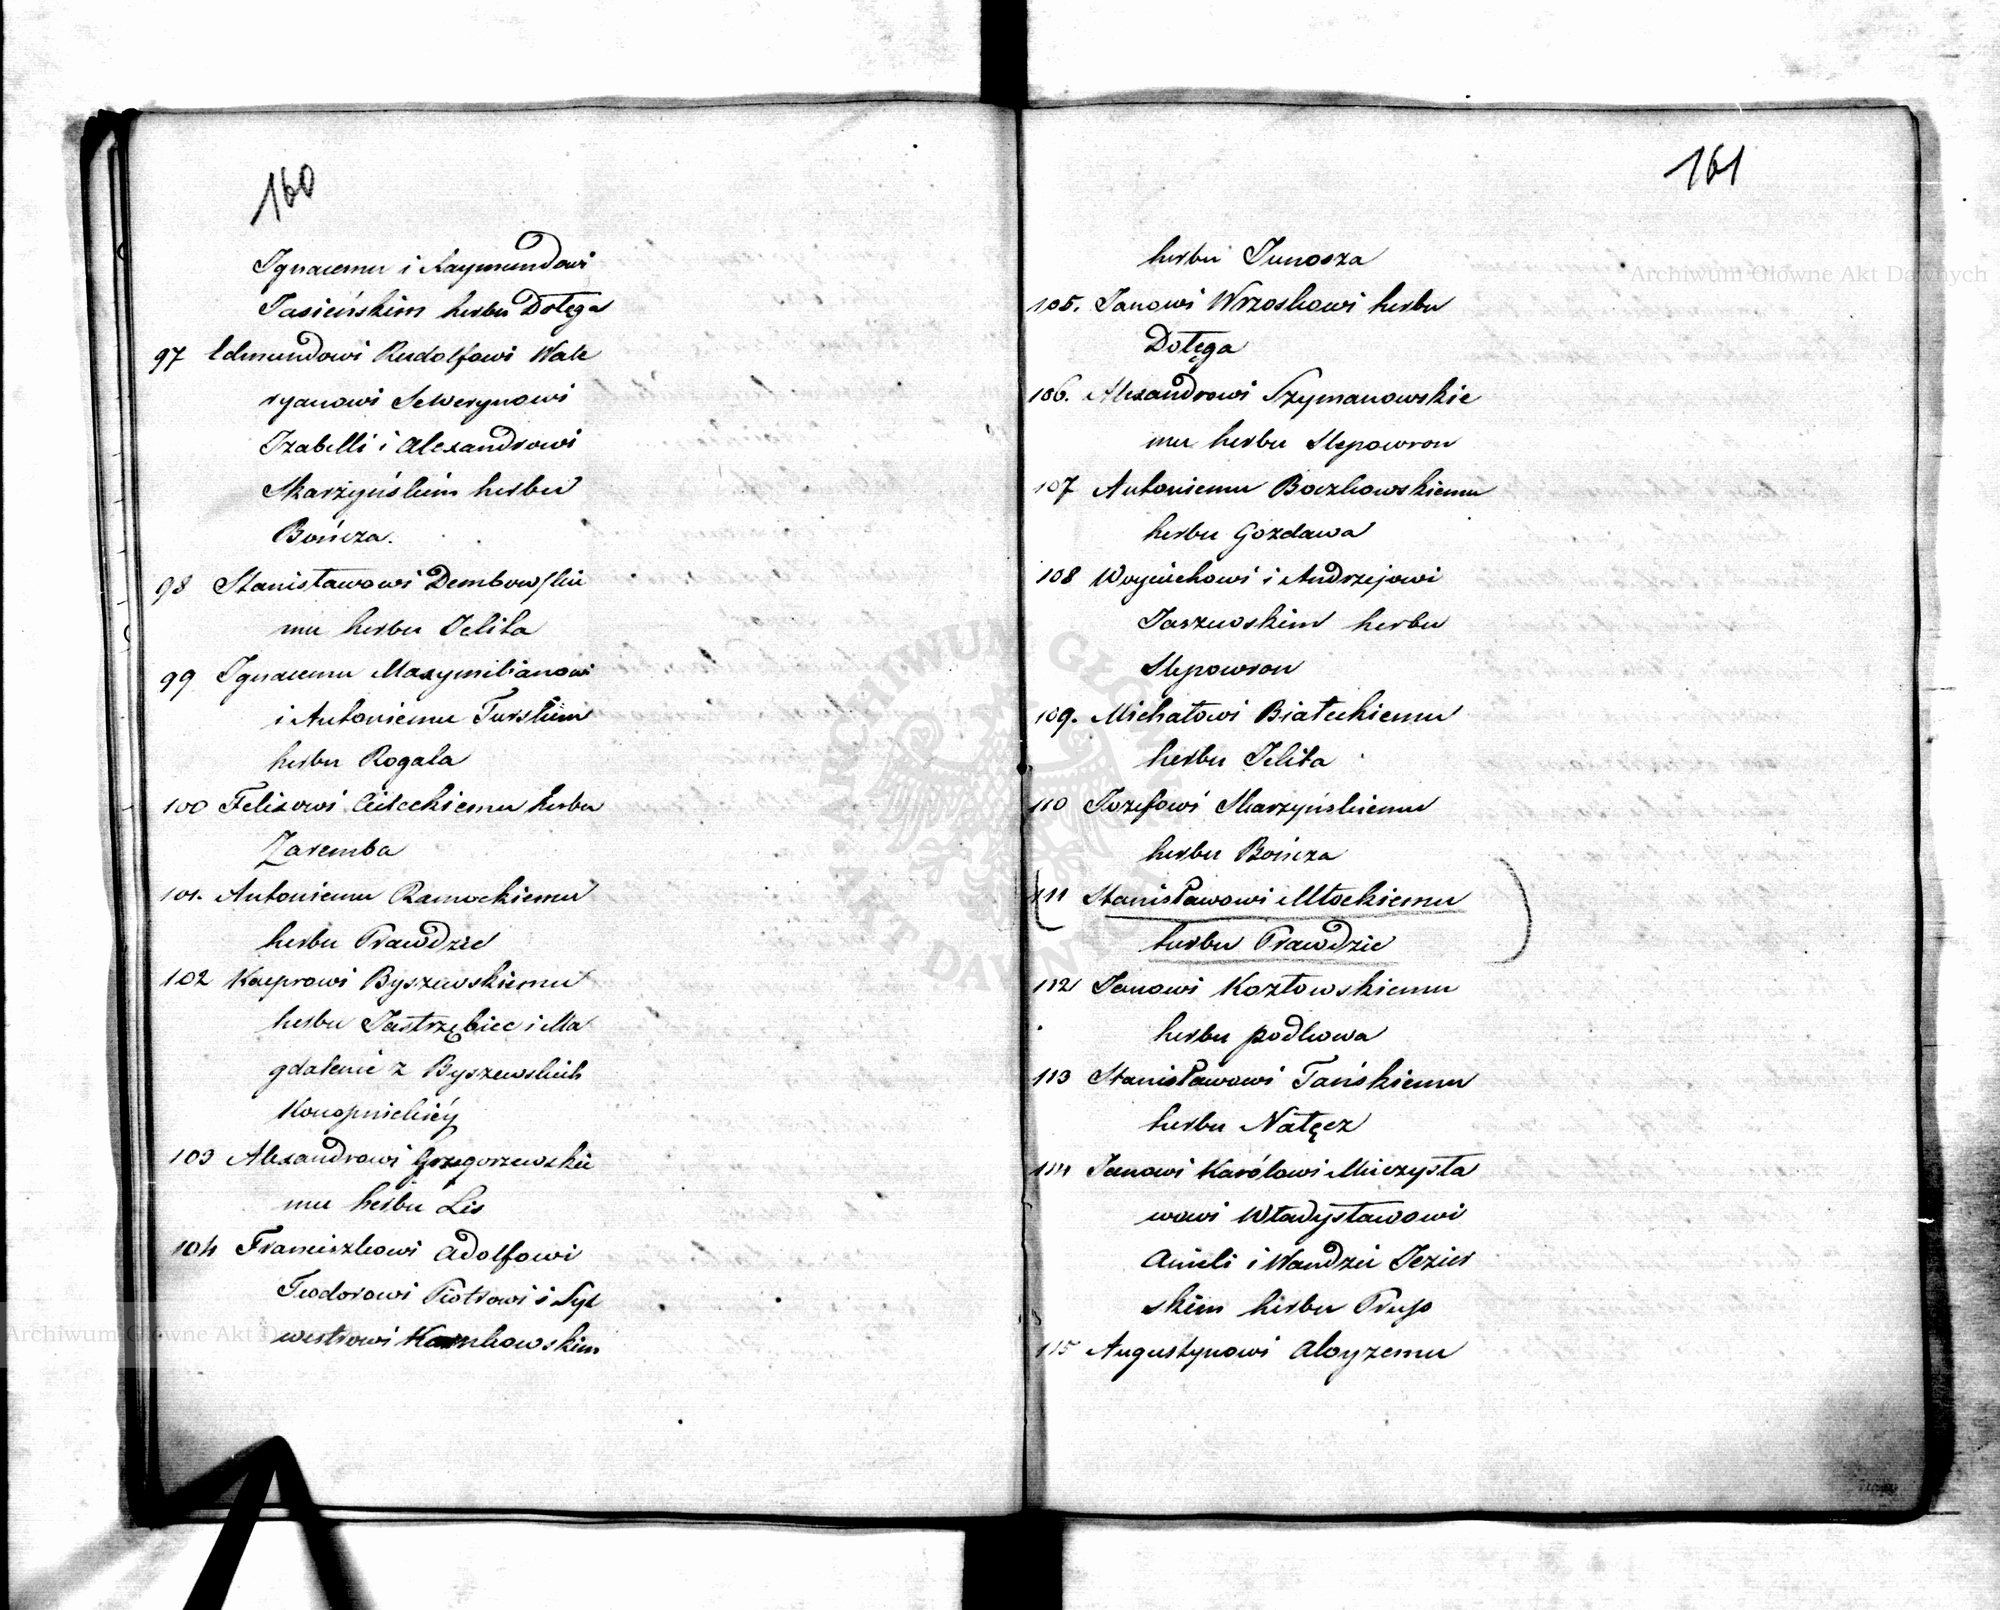 160
Ignacemu i Raymundowi
Jasieńskim herbu Dołęga
97 Edmundowi Rudolfowi Wale
ryanowi Sewerynowi
Izabelli i Alexandrowi
Skarżyńskim herbu
Bończa.
98 Stanisławowi Dembowskie
mu herbu Jelita
99 Ignacemu Maxymilianowi
i Antoniemu Turskim
herbu Rogala
100 Felixowi Cieleckiemu herbu
Zaremba
101. Antoniemu Ramockiemu
herbu Prawdzic
102 Kacprowi Byszewskiemu
herbu Jastrzębiec i Ma
gdalenie z Byszewskich
Konopnickiéy
103 Alexandrowi Grzegorzewskie
mu herbu Lis
104 Franciszkowi Adolfowi
Teodorowi Piotrowi i Syl
westrowi Karnkowskim
161
herbu Junosza
105. Janowi Wrzoskowi herbu
Dołęga
106. Alexandrowi Szymanowskie
mu herbu Slepowron
107 Antoniemu Boczkowskiemu
herbu Gozdawa
108 Woyciechowi i Andrzejowi
Jaszewskim herbu
Slepowron
109. Michałowi Białeckiemu
herbu Jelita
110 Jozefowi Skarzyńskiemu
herbu Bończa
111 Stanisławowi Młockiemu
herbu Prawdzic
112 Janowi Kozłowskiemu
herbu podkowa
113 Stanisławowi Tańskiemu
herbu Nałęcz
114 Janowi Karólowi Mieczysła
wowi Władysławowi
Anieli i Wandzie Jezier
skim herbu Prus
115 Augustynowi Aloyzemu
Archiwum Główne Akt Dawnych
Archiwum Główne Akt Dawnych
ARCHIWUM GŁÓWNE AKT DAWNYCH